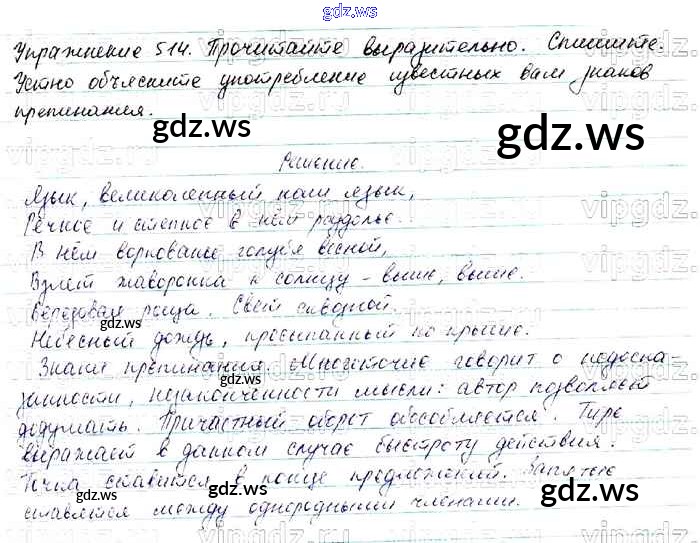 gdz.ws
Упражнение 514. Прочитайте выразительно. Спишите.
Устно объясните употребление известных вам знаков
препинания.
gdz.ws
gdz.ws
Решение.
Язык, великолепный наш язык,
Речное и степное в нём раздолье.
gdz.ws
В нём воркование голубя весной,
Взлёт жаворонка к солнцу – выше, выше.
Берёзовая роща. Свет сквозной.
gdz.ws
Небесный дождь, просыпанный по крыше.
Знаки препинания. Многоточие говорит о недоска
занности, незаконченности мысли: автор позволяет
gdz.ws
додумать. Причастный оборот обособляется. Тире
выражает в данном случае быстроту действия.
Точка ставится в конце предложений. Запятые
ставятся между однородными членами.
gdz.ws
gdz.ws
gdz.ws